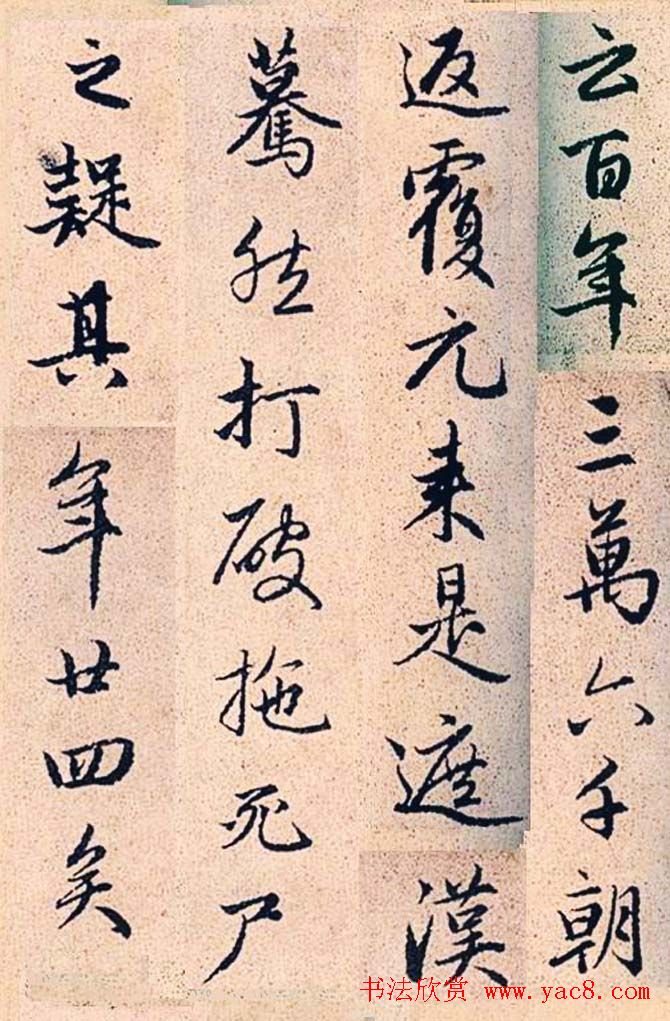 云百年三萬六千朝
返覆元来是遮漢
驀然打破拖死尸
之疑其年廿四矣
书法欣赏 www.yac8.com